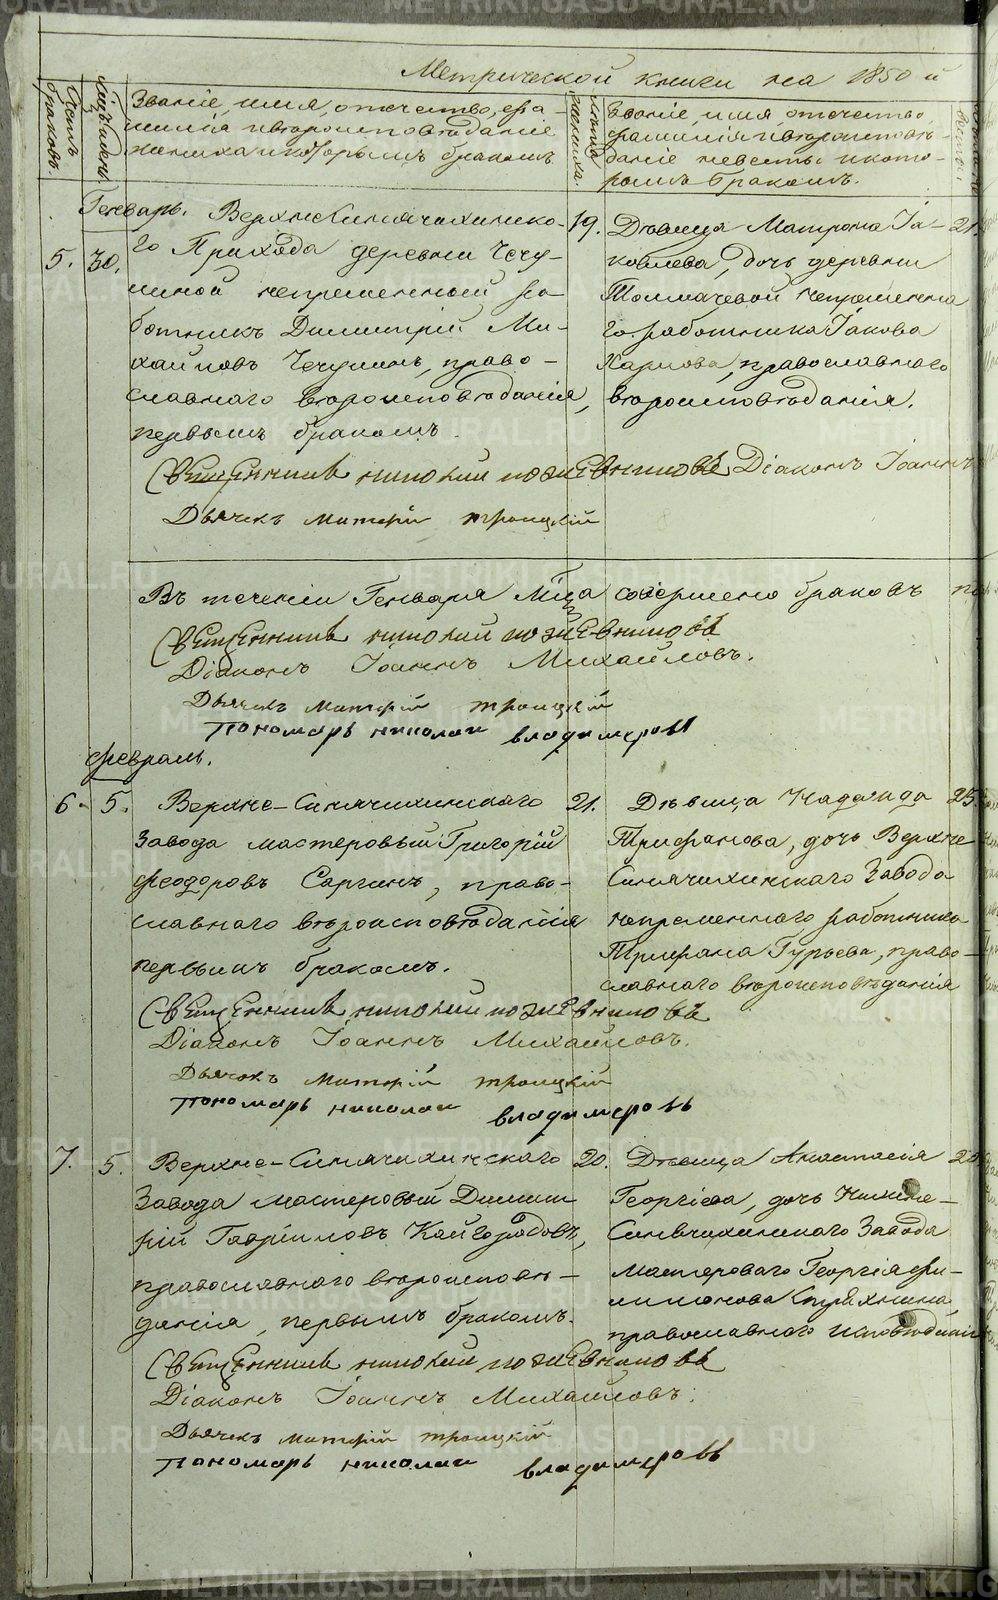 Метрической книги на 1850 й
Числъ браковъ.
Мѣсяцъ и день.
Званіе, имя, отчество, фа-
милія и вѣроисповѣданіе
жениха и которымъ бракомъ
Лѣта жениха.
Званіе, имя, отчество,
фамилія и вѣроисповѣ-
даніе невесты и кото-
рымъ бракомъ.
Генварь.
5. 30.
Верхнесинячихинска-
го Прихода деревни Чечу-
линой непременный ра-
ботникъ Димитрій Ми-
хайловъ Чечулинъ, право-
славнаго вѣроисповѣданія,
первымъ бракомъ.
19.
Дѣвица Матрона Іа-
ковлева, дочь деревни
Толмачевой непременна
го работника Іакова
Карпова, православнаго
вѣроисповѣданія.
21.
Священникъ николай пожевниковъ Діаконъ Іоаннъ
Дьячекъ матфій троицкій
Въ теченіи Генваря Мца совершено браковъ
Священникъ николай пожевниковъ
Діаконъ Іоаннъ Михайловъ.
Дьячекъ матфій троицкій
Пономарь николаи владимеровъ
Февраль.
6. 5.
Верхне-Синячихинскаго
Завода мастеровый Григорій
Феодоровъ Саргинъ, право-
славнаго вѣроисповѣданія
первымъ бракомъ.
21.
Дѣвица Надежда
Трифанова, дочь Верхне
Синячихинскаго Завода
непременнаго работника
Трифана Гурьева, право-
славнаго вѣроисповѣданія
25
Священникъ николай пожевниковъ
Діаконъ Іоаннъ Михайловъ.
Дьячокъ матфій троицкій
Пономарь николаи владимеровъ
7. 5.
Верхне-Синячихинскаго
Завода мастеровый Димит-
рій Гавріиловъ Кайгородовъ,
православнаго вѣроисповѣ-
данія, первымъ бракомъ.
20.
Дѣвица Анастасія
Георгіева, дочь Нижне-
Синячихинскаго Завода
Мастероваго Георгія Фи-
лимонова Стряхнина,
православнаго исповѣданія
Священникъ николай пожевниковъ
Діаконъ Іоаннъ Михайловъ:
Дьячекъ матфій троицкій
Пономарь николаи владимеровъ
METRIKI.GASO-URAL.RU